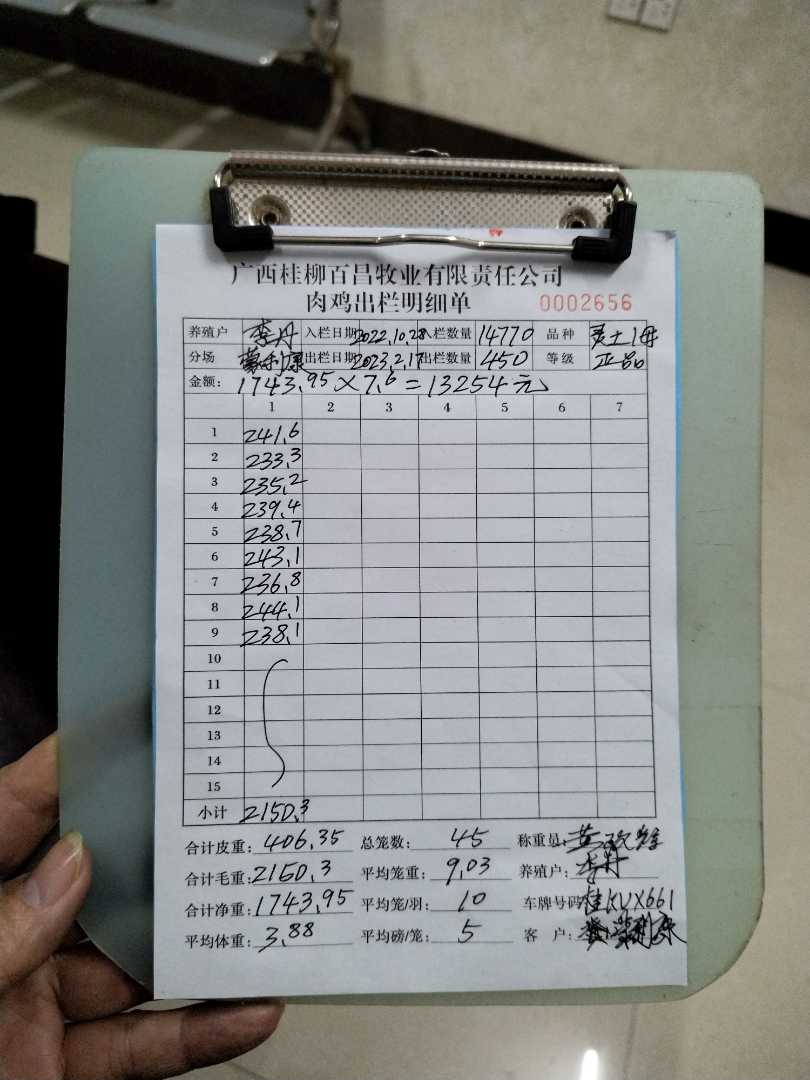 广西桂柳百昌牧业有限责任公司
肉鸡出栏明细单 0002656
养殖户 李丹 入栏日期 2022.10.28 入栏数量 14770 品种 灵土1母
分场 蒙利康 出栏日期 2023.2.17 出栏数量 450 等级 正品
金额: 1743.95×7.6=13254元
1 2 3 4 5 6 7
1 241.6
2 233.3
3 235.2
4 239.4
5 238.7
6 243.1
7 236.8
8 244.1
9 238.1
10
11
12
13
14
15
小计 2150.3
合计皮重: 406.35 总笼数: 45 称重员:
合计毛重: 2150.3 平均笼重: 9.03 养殖户: 李丹
合计净重: 1743.95 平均笼/羽: 10 车牌号码: 桂KVX661
平均体重: 3.88 平均磅/笼: 5 客户: